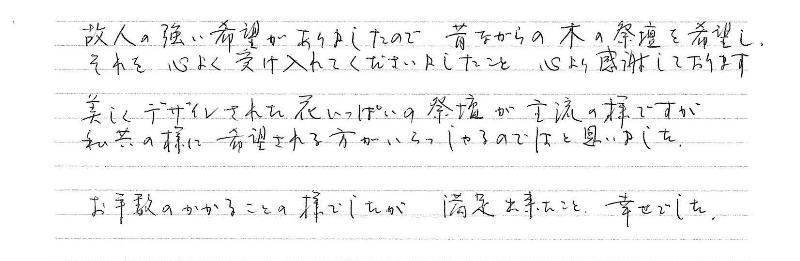 故人の強い希望がありましたので 昔ながらの木の祭壇を希望し、
それを 心よく受け入れてくださいましたこと 心より感謝しております
美しくデザインされた花いっぱいの祭壇が主流の様ですが
私共の様に希望される方がいらっしゃるのではと思いました。
お手数のかかることの様でしたが 満足出来たこと、幸せでした。